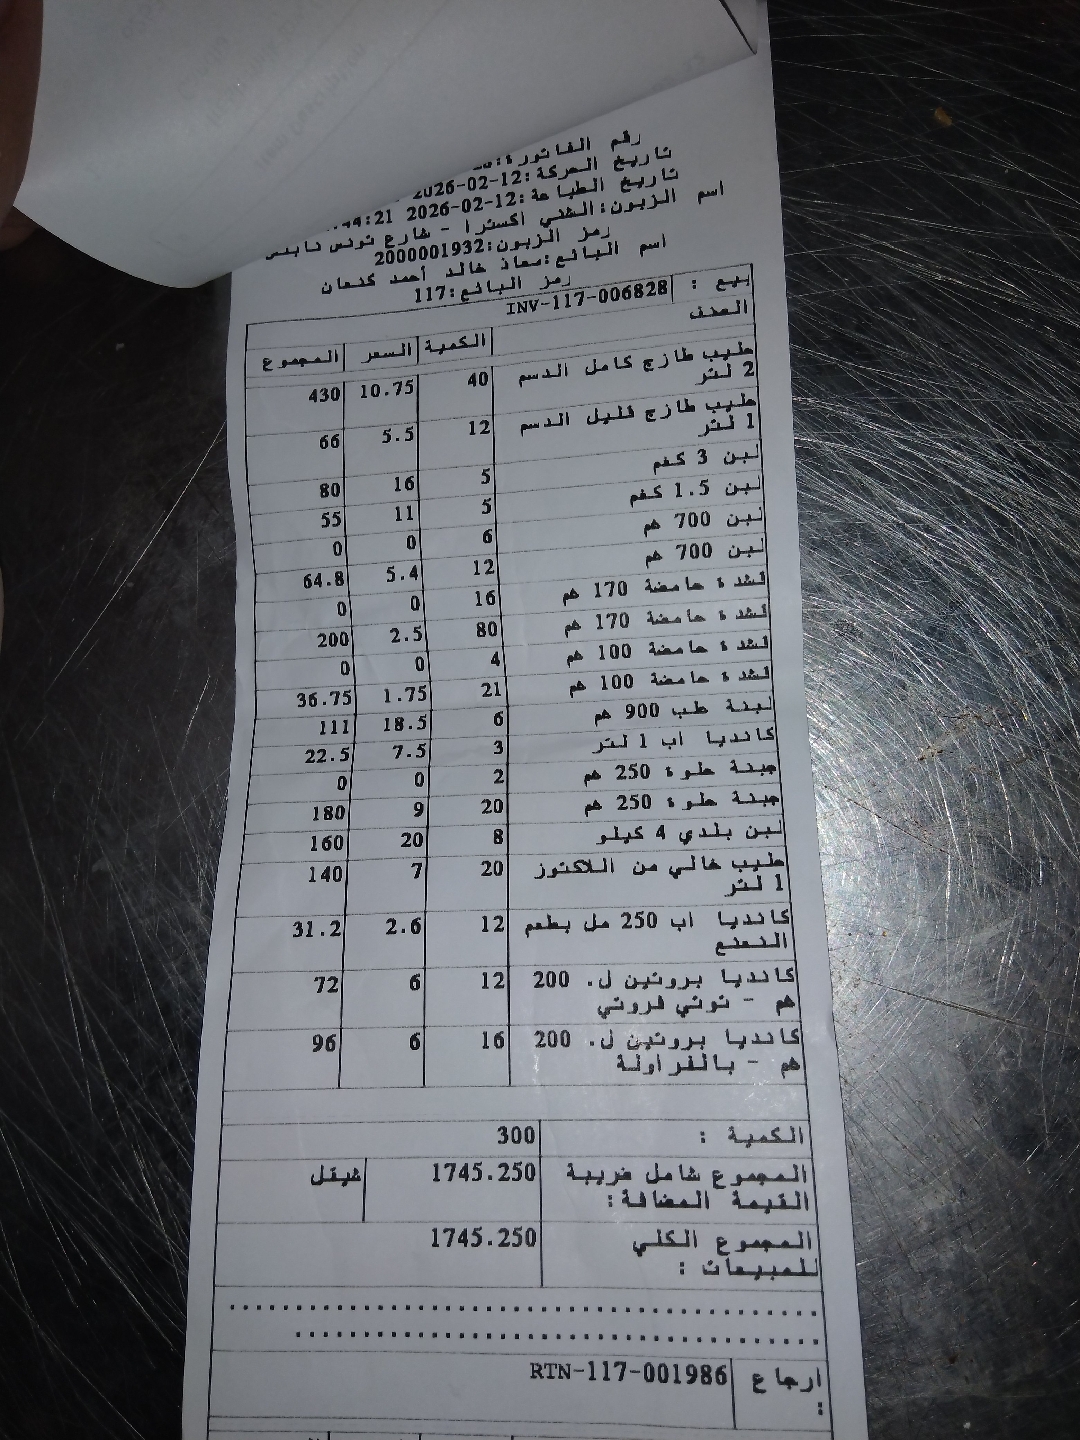 رقم الفاتورة:
تاريخ الحركة:12-02-2026
تاريخ الطباعة:12-02-2026 44:21
اسم الزبون:الشني اكسترا - شارع تونس نابلس
رمز الزبون:2000001932
اسم البائع:معاذ خالد أحمد كنعان
رمز البائع:117
بيع : INV-117-006828
الصنف الكمية السعر المجموع
حليب طازج كامل الدسم 40 10.75 430
2 لتر
حليب طازج قليل الدسم 12 5.5 66
1 لتر
لبن 3 كغم 5 16 80
لبن 1.5 كغم 5 11 55
لبن 700 غم 6 0 0
لبن 700 غم 12 5.4 64.8
قشدة حامضة 170 غم 16 0 0
قشدة حامضة 170 غم 80 2.5 200
قشدة حامضة 100 غم 4 0 0
قشدة حامضة 100 غم 21 1.75 36.75
لبنة طب 900 غم 6 18.5 111
كانديا اب 1 لتر 3 7.5 22.5
جبنة حلوة 250 غم 2 0 0
جبنة حلوة 250 غم 20 9 180
لبن بلدي 4 كيلو 8 20 160
حليب خالي من اللاكتوز 20 7 140
1 لتر
كانديا اب 250 مل بطعم 12 2.6 31.2
النعنع
كانديا بروتين ل. 200 12 6 72
غم - توتي فروتي
كانديا بروتين ل. 200 16 6 96
غم - بالفراولة
الكمية : 300
المجموع شامل ضريبة 1745.250 شيقل
القيمة المضافة:
المجموع الكلي 1745.250
للمبيعات :
ارجاع RTN-117-001986
: